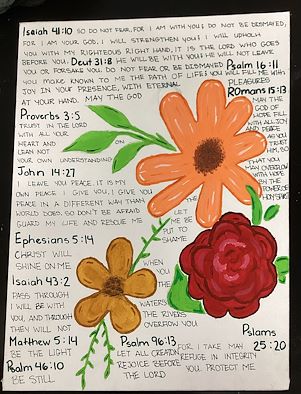 Isaiah 41:10 SO DO NOT FEAR, FOR I AM WITH YOU & DO NOT BE DISMAYED,
FOR I AM YOUR GOD, I WILL STRENGTHEN YOU & I WILL UPHOLD
YOU WITH MY RIGHTEOUS RIGHT HAND, IT IS THE LORD WHO GOES
BEFORE YOU. Deut 31:8 HE WILL BE WITH YOU & HE WILL NOT LEAVE
YOU OR FORSAKE YOU. DO NOT FEAR OR BE DISMAYED Psalm 16:11
YOU MAKE KNOWN TO ME THE PATH OF LIFE & YOU WILL FILL ME WITH
JOY IN YOUR PRESENCE, WITH ETERNAL PLEASURES
AT YOUR HAND. MAY THE GOD Romans 15:13
MAY THE
GOD OF
HOPE FILL
WITH ALL JOY
AND PEACE
AS YOU
TRUST IN
HIM, SO
THAT YOU
MAY OVERFLOW
WITH HOPE
BY THE
POWER OF
Proverbs 3:5
TRUST IN THE
LORD WITH ALL
YOUR HEART AND
LEAN NOT ON
YOUR OWN UNDERSTANDING
John 14:27
I LEAVE YOU PEACE, IT IS MY
OWN PEACE I GIVE YOU, I GIVE YOU
PEACE IN A DIFFERENT WAY THAN THE
WORLD DOES. SO DON'T BE AFRAID
GUARD MY LIFE AND RESCUE ME
LET
ME BE
PUT TO
SHAME
Ephesians 5:14
CHRIST WILL
SHINE ON ME
Isaiah 43:2 WHEN YOU
PASS THROUGH THE WATERS
I WILL BE WITH
YOU, AND THROUGH THE RIVERS
THEN WILL NOT OVERFLOW YOU
Matthew 5:14
BE THE LIGHT
Psalm 46:10
BE STILL
Psalm 96:13
LET ALL CREATION
REJOICE BEFORE
THE LORD
Pslams
25:20
FOR I TAKE
REFUGE IN
MAY INTEGRITY
YOU, PROTECT ME